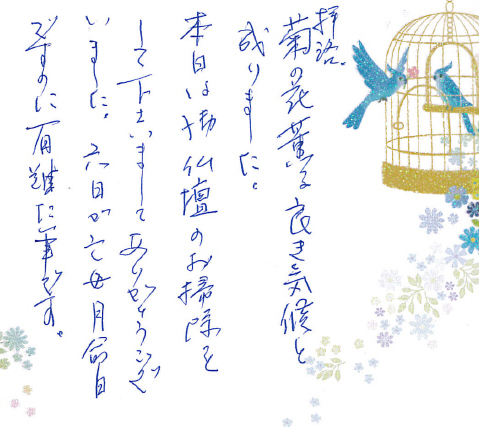 拝啓、
菊の花薫る良き気候と
成りました。
本日は御仏壇のお掃除を
して下さいましてありがとうござ
いました。六日が亡母月命日
ですのに有難い事です。